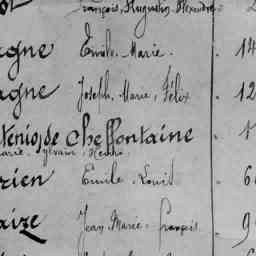 François, Huguelin, Alexandre
agne Emile. Marie. 14
agne Joseph. Marie. Félix 12
tenio, de Cheffontaine 1
Marie. Sylvain. Henri.
rien Emile. Louis 6
aize Jean Marie. François 9